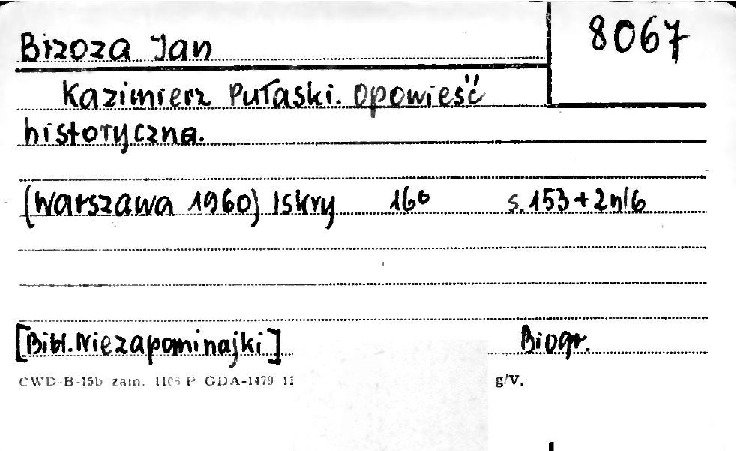 Brzoza Jan
8067
Kazimierz Pułaski. Opowieść
historyczna.
(Warszawa 1960) Iskry 16° s.153+2nlb
[Bibl. Niezapominajki] Biogr.
CWD-B-15b zam. 1106 P GDA-1479 11
g/V.